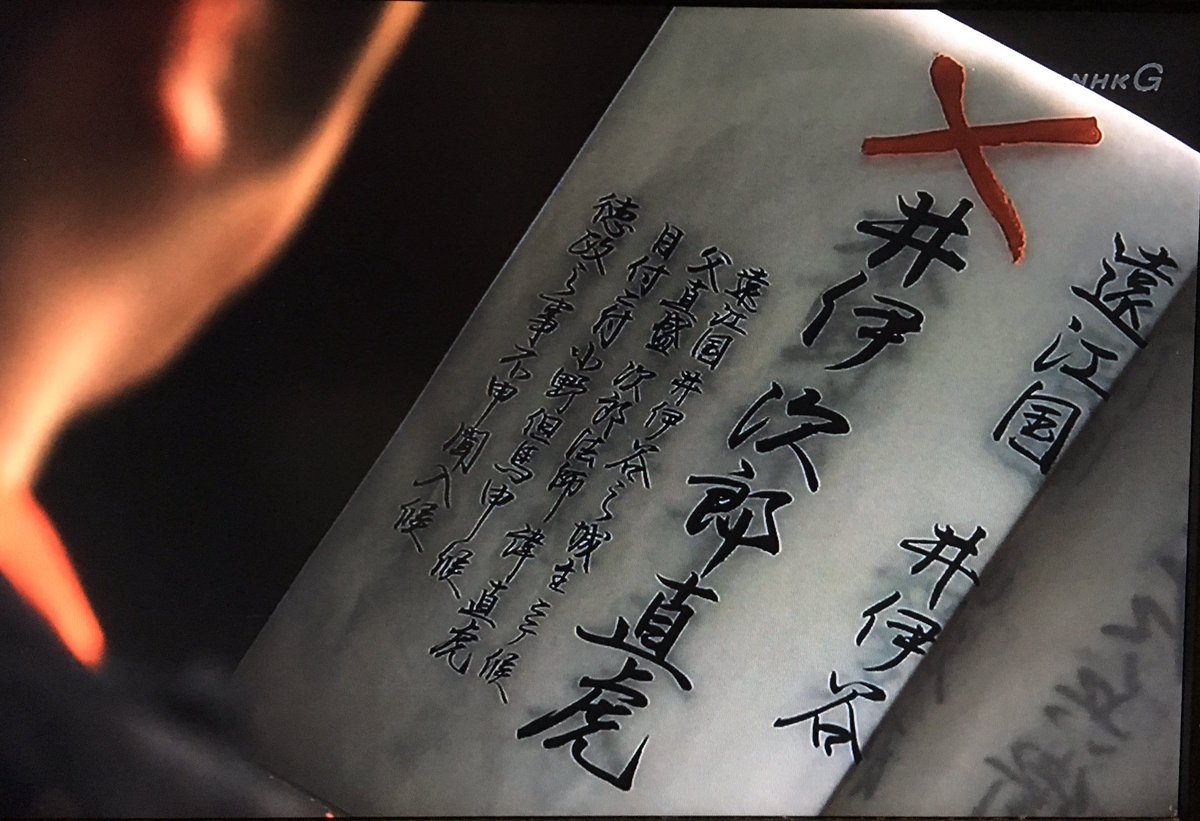 NHK G
遠江国 井伊谷
井伊次郎直虎
遠江国井伊谷之城主ニテ候
父直盛 次郎法師 諱直虎
目付ニ付小野但馬申候
徳政之事不申聞入候